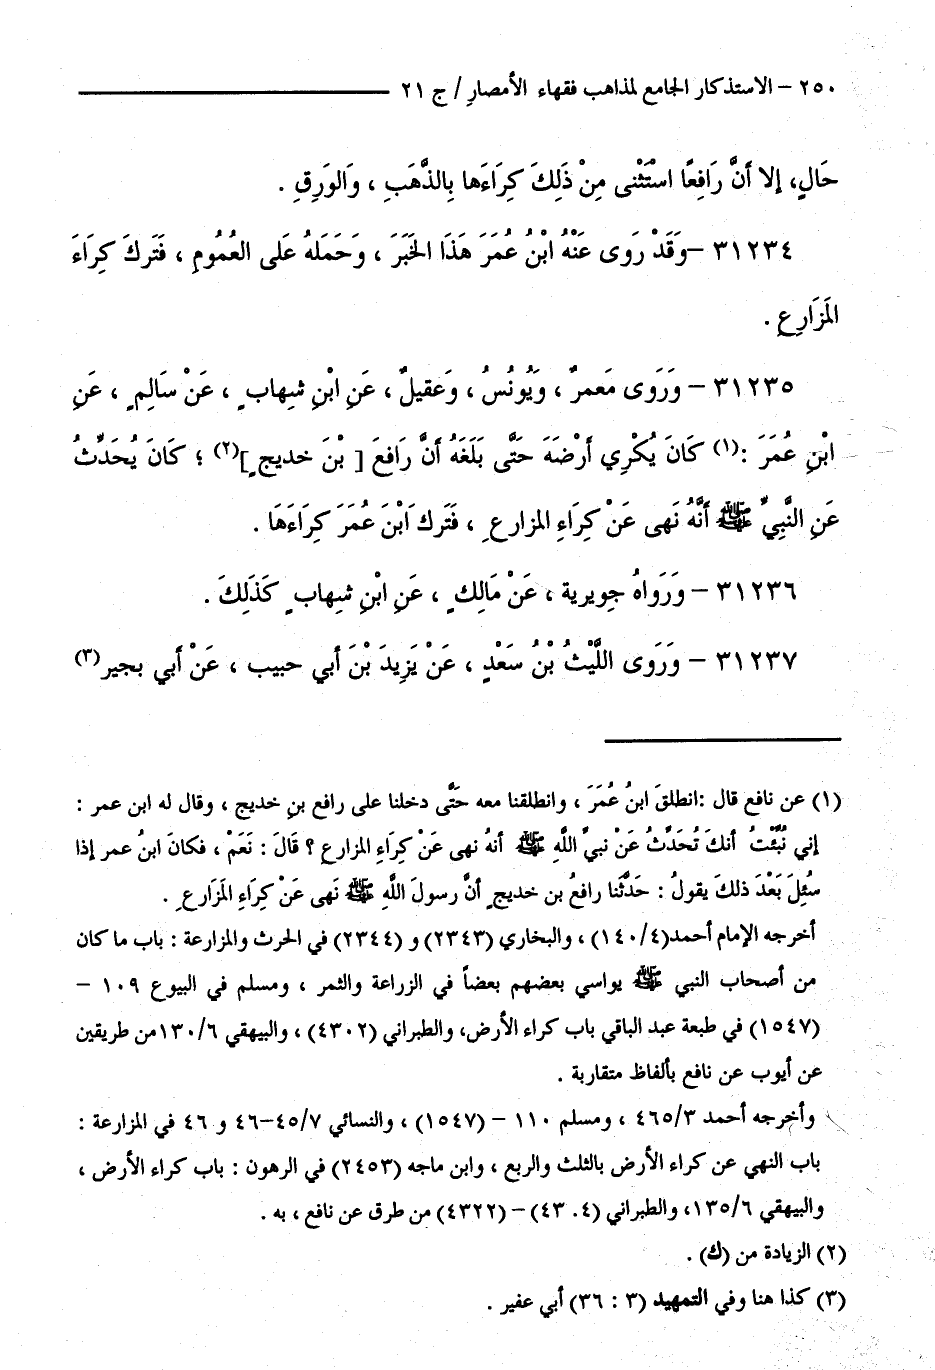 ٢٥٠ – الاستذكار الجامع لمذاهب فقهاء الأمصارِ / ج ٢١
حَالٍ، إلا أنَّ رَافِعًا اسْتَثْنى مِنْ ذَلِكَ كِرَاءَها بِالذَّهَبِ ، وَالوَرِقِ .
٣١٢٣٤ –وَقَدْ رَوى عَنْهُ ابْنُ عُمَرَ هَذَا الخَبَرَ ، وَحَمَلهُ عَلى العُمُومِ ، فَتَركَ كِرَاءَ
المَزَارِعِ .
٣١٢٣٥ – وَرَوى مَعمرٌ ، وَيُونُسُ ، وَعَقيلٌ ، عَنِ ابْنِ شِهاب ٍ ، عَنْ سَالِمٍ ، عَنِ
ابْنِ عُمَرَ :(١) كَانَ يُكْرِي أرْضَهَ حَتَّى بَلَغَهُ أنَّ رَافِعَ [ بْنَ خديجٍ ](٢) ؛ كَانَ يُحَدِّثُ
عَنِ النَّبِيِّ ﷺ أنَّهُ نَهى عَنْ كِرَاءِ المزارعِ ، فَتَركَ ابْنَ عُمَرَ كِرَاءَهَا .
٣١٢٣٦ – وَرَوَاهُ جويرية ، عَنْ مَالِك ٍ ، عَنِ ابْنِ شِهاب ٍ كَذَلِكَ .
٣١٢٣٧ – وَرَوى اللَّيْثُ بْنُ سَعْدٍ ، عَنْ يَزِيدَ بْنَ أبي حبيب ، عَنْ أبي بجير(٣)
(١) عن نافع قال :انطلقَ ابنُ عُمَرَ ، وانطلقنا معه حَتَّى دخلنا على رافع بنِ خديج ، وقال له ابن عمر :
إني نُبِّئْتُ أنكَ تُحَدِّثُ عَنْ نبيِّ اللَّهِ ﷺ أنهُ نهى عَنْ كِرَاءِ المزارعِ ؟ قَالَ : نَعَمْ ، فكانَ ابنُ عمر إذا
سُئِلَ بَعْدَ ذلكَ يقولُ : حَدَّثَنا رافعُ بن خديجٍ أنَّ رسولَ اللَّهِ ﷺ نَهى عَنْ كِرَاءِ المَزَارعِ .
أخرجه الإمام أحمد(١٤٠/٤) ، والبخاري (٢٣٤٣) و (٢٣٤٤) في الحرث والمزارعة : باب ما كان
من أصحاب النبي ﷺ يواسي بعضهم بعضاً في الزراعة والثمر ، ومسلم في البيوع ١٠٩ –
(١٥٤٧) في طبعة عبد الباقي باب كراء الأرض، والطبراني (٤٣٠٢) ، والبيهقي ١٣٠/٦من طريقين
عن أيوب عن نافع بألفاظ متقاربة .
وأخرجه أحمد ٤٦٥/٣ ، ومسلم ١١٠ – (١٥٤٧) ، والنسائي ٤٥/٧–٤٦ و ٤٦ في المزارعة :
باب النهي عن كراء الأرض بالثلث والربع ، وابن ماجه (٢٤٥٣) في الرهون : باب كراء الأرض ،
والبيهقي ١٣٥/٦، والطبراني (٤٣٠٤) –(٤٣٢٢) من طرق عن نافع ، به .
(٢) الزيادة من (ك) .
(٣) كذا هنا وفي التمهيد (٣ : ٣٦) أبي عفير .